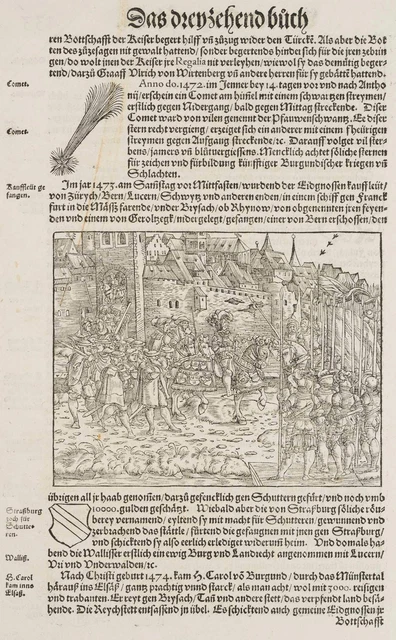 Das dreyzehend büch
ren Bottschafft der Keiser begert hilff vñ zůzug wider den Türckē. Als aber die Bot
ten des zůzesagen nit gewalt hattend / sonder begertends hindersich für die jren zebrin
gen / do wolt jnen der Keiser jre Regalia nit verleyhen / wiewol sy das demütig begertend / darzů Graaff Ulrich von Wirtenberg vñ andere herren für sy gebätten hattend.
Comet.
Anno do. 1472. im Jenner bey 14. tagen vor vnd nach Antho
nij / erschein ein Comet am himel mit einem schwartzen streymen /
erstlich gegen Nidergang / bald gegen Mittag streckende. Diser
Comet ward von vilen genennt der Pfauwenschwantz. Ee diser
Comet.
stern recht vergieng / erzeiget sich ein anderer mit einem fheürigen
streymen gegen Aufgang streckende / rc. Darauff volget vil ster-
bens / jamers vñ blůtvergiessens. Mencklich achtet söliche sternen
für zeichen vnd fürbildung künfftiger Burgundischer kriegen vñ
Schlachten.
Kauffleüt ge
fangen.
Im jar 1473. am Samstag vor Mittfasten / wurdend der Eidgnossen kauffleüt /
von Zürych / Bern / Lucern / Schwytz vnd anderen enden / in einem schiff gen Franck
furt in die Mäß farende / vnder Brysach / ob Rhynow / von obgenennten jren feyen-
den vnd einem von Geroltzegk / nidergelegt / gefangen / einer von Bern erschossen / den
übrigen all jr haab genommen / darzů gefencklich gen Schuttern gefürt / vnd noch vmb
10000. gulden geschätzt. Wiebald aber die von Straßburg söliche röu-
Straßburg
zoch für
Schutte-
ren.
berey vernamend / eyltend sy mit macht für Schutteren / gewunnend vnd
zerbrachend das stättle / fürtend die gefangnen mit jnen gen Straßburg /
vnd schicktend sy also eerlich erlediget widerumb heim. Vnd domals ha-
Walliß.
bend die Wallisser erstlich ein ewig Burg vnd Landrecht angenommen mit Lucern /
Vri vnd Vnderwalden / rc.
H. Carol
kam inns
Elsaß.
Nach Christi geburt 1474. kam H. Carol vō Burgund / durch das Münstertal
härauß ins Elsaß / gantz prachtig vnnd starck / als man acht / wol mit 3000. reisigen
vnd trabanten. Er reyt gen Brysach / Tañ vnd andere stett / das verpfendt land besä-
hende. Die Reychstett entsassend jn übel. Es schicktend auch gemeine Eidgnossen jr
Bottschafft